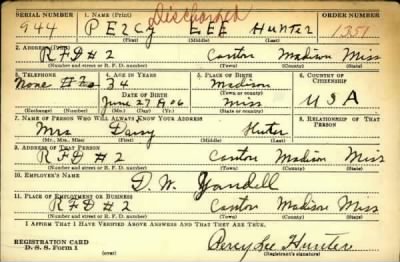 Discharged
SERIAL NUMBER 1. NAME (Print) ORDER NUMBER
944 PERCY LEE HUNTER 1351
(First) (Middle) (Last)
2. ADDRESS (Print)
RFD # 2 Canton Madison Miss
(Number and street or R. F. D. number) (Town) (County) (State)
3. TELEPHONE 4. AGE IN YEARS 5. PLACE OF BIRTH 6. COUNTRY OF CITIZENSHIP
None 34 Madison
(Town or county)
June 27 1906 Miss U S A
(Exchange) (Number) (Mo.) (Day) (Yr.) (State or country)
7. NAME OF PERSON WHO WILL ALWAYS KNOW YOUR ADDRESS 8. RELATIONSHIP OF THAT PERSON
Mrs Daisy Huter
(Mr., Mrs., Miss) (First) (Middle) (Last)
9. ADDRESS OF THAT PERSON
RFD # 2 Canton Madison Miss
(Number and street or R. F. D. number) (Town) (County) (State)
10. EMPLOYER'S NAME
D. W. Yandell
11. PLACE OF EMPLOYMENT OR BUSINESS
RFD # 2 Canton Madison Miss
(Number and street or R. F. D. number) (Town) (County) (State)
I AFFIRM THAT I HAVE VERIFIED ABOVE ANSWERS AND THAT THEY ARE TRUE.
REGISTRATION CARD
D. S. S. Form 1 Percy Lee Hunter
(Registrant's signature)